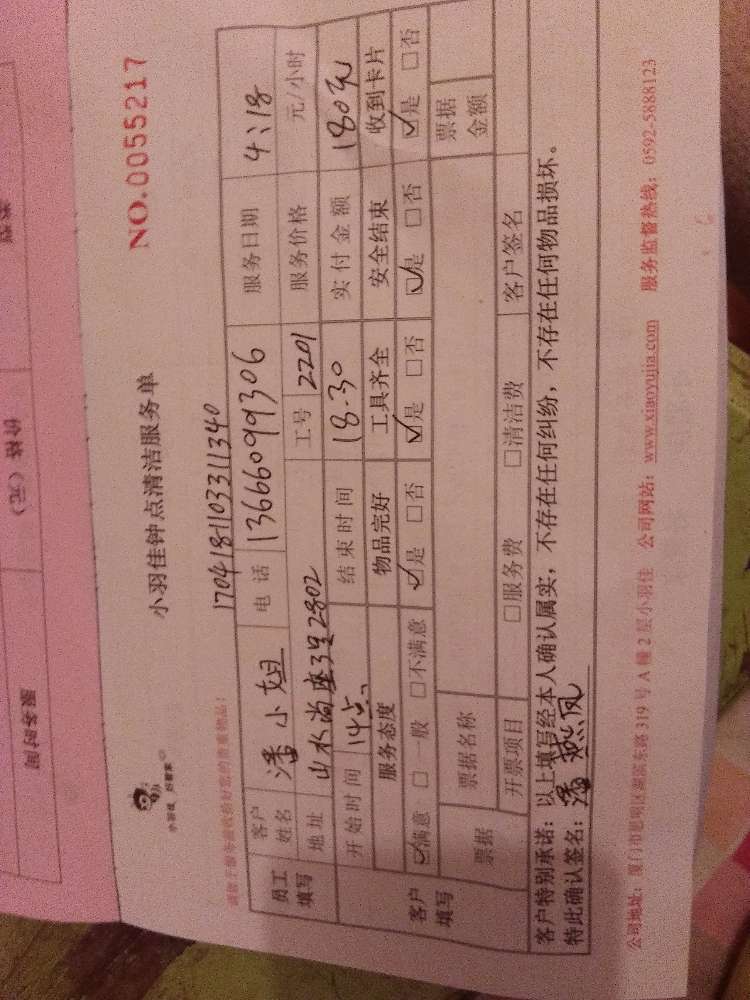 小羽佳钟点清洁服务单
NO.0055217
小羽佳 好管家
170418110331340
员工填写
客户姓名 潘小姐 电话 13666099306 服务日期 4:18
地址 山水尚座3里2802 工号 2201 服务价格 元/小时
开始时间 14点 结束时间 18.30 实付金额 180元
客户填写
服务态度 物品完好 工具齐全 安全结束 收到卡片
☑满意 □一般 □不满意 ☑是 □否 ☑是 □否 ☑是 □否 ☑是 □否
票据 票据名称 票据金额
开票项目 □服务费 □清洁费 客户签名
客户特别承诺：以上填写经本人确认属实，不存在任何纠纷，不存在任何物品损坏。
特此确认签名：潘燕凤
公司地址：厦门市思明区湖滨东路319号A幢2层小羽佳 公司网站：www.xiaoyujia.com 服务监督热线：0592-5888123
价格（元）
服务时间